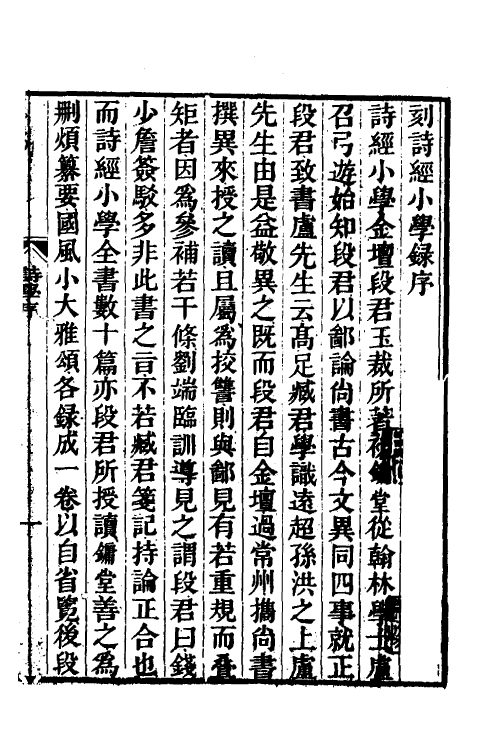 刻詩經小學録序
詩經小學金壇段君玉裁所著初鏞堂從翰林學士盧
召弓遊始知段君以鄙論尙書古今文異同四事就正
段君致書盧先生云高足臧君學識遠超孫洪之上盧
先生由是益敬異之既而段君自金壇過常州攜尙書
撰異來授之讀且屬爲挍讐則與鄙見有若重規而疊
矩者因爲參補若干條劉端臨訓導見之謂段君曰錢
少詹簽駁多非此書之㫖不若臧君箋記持論正合也
而詩經小學全書數十篇亦段君所授讀鏞堂善之爲
刪煩纂要國風小大雅頌各録成一卷以自省覽後段
詩學序
一